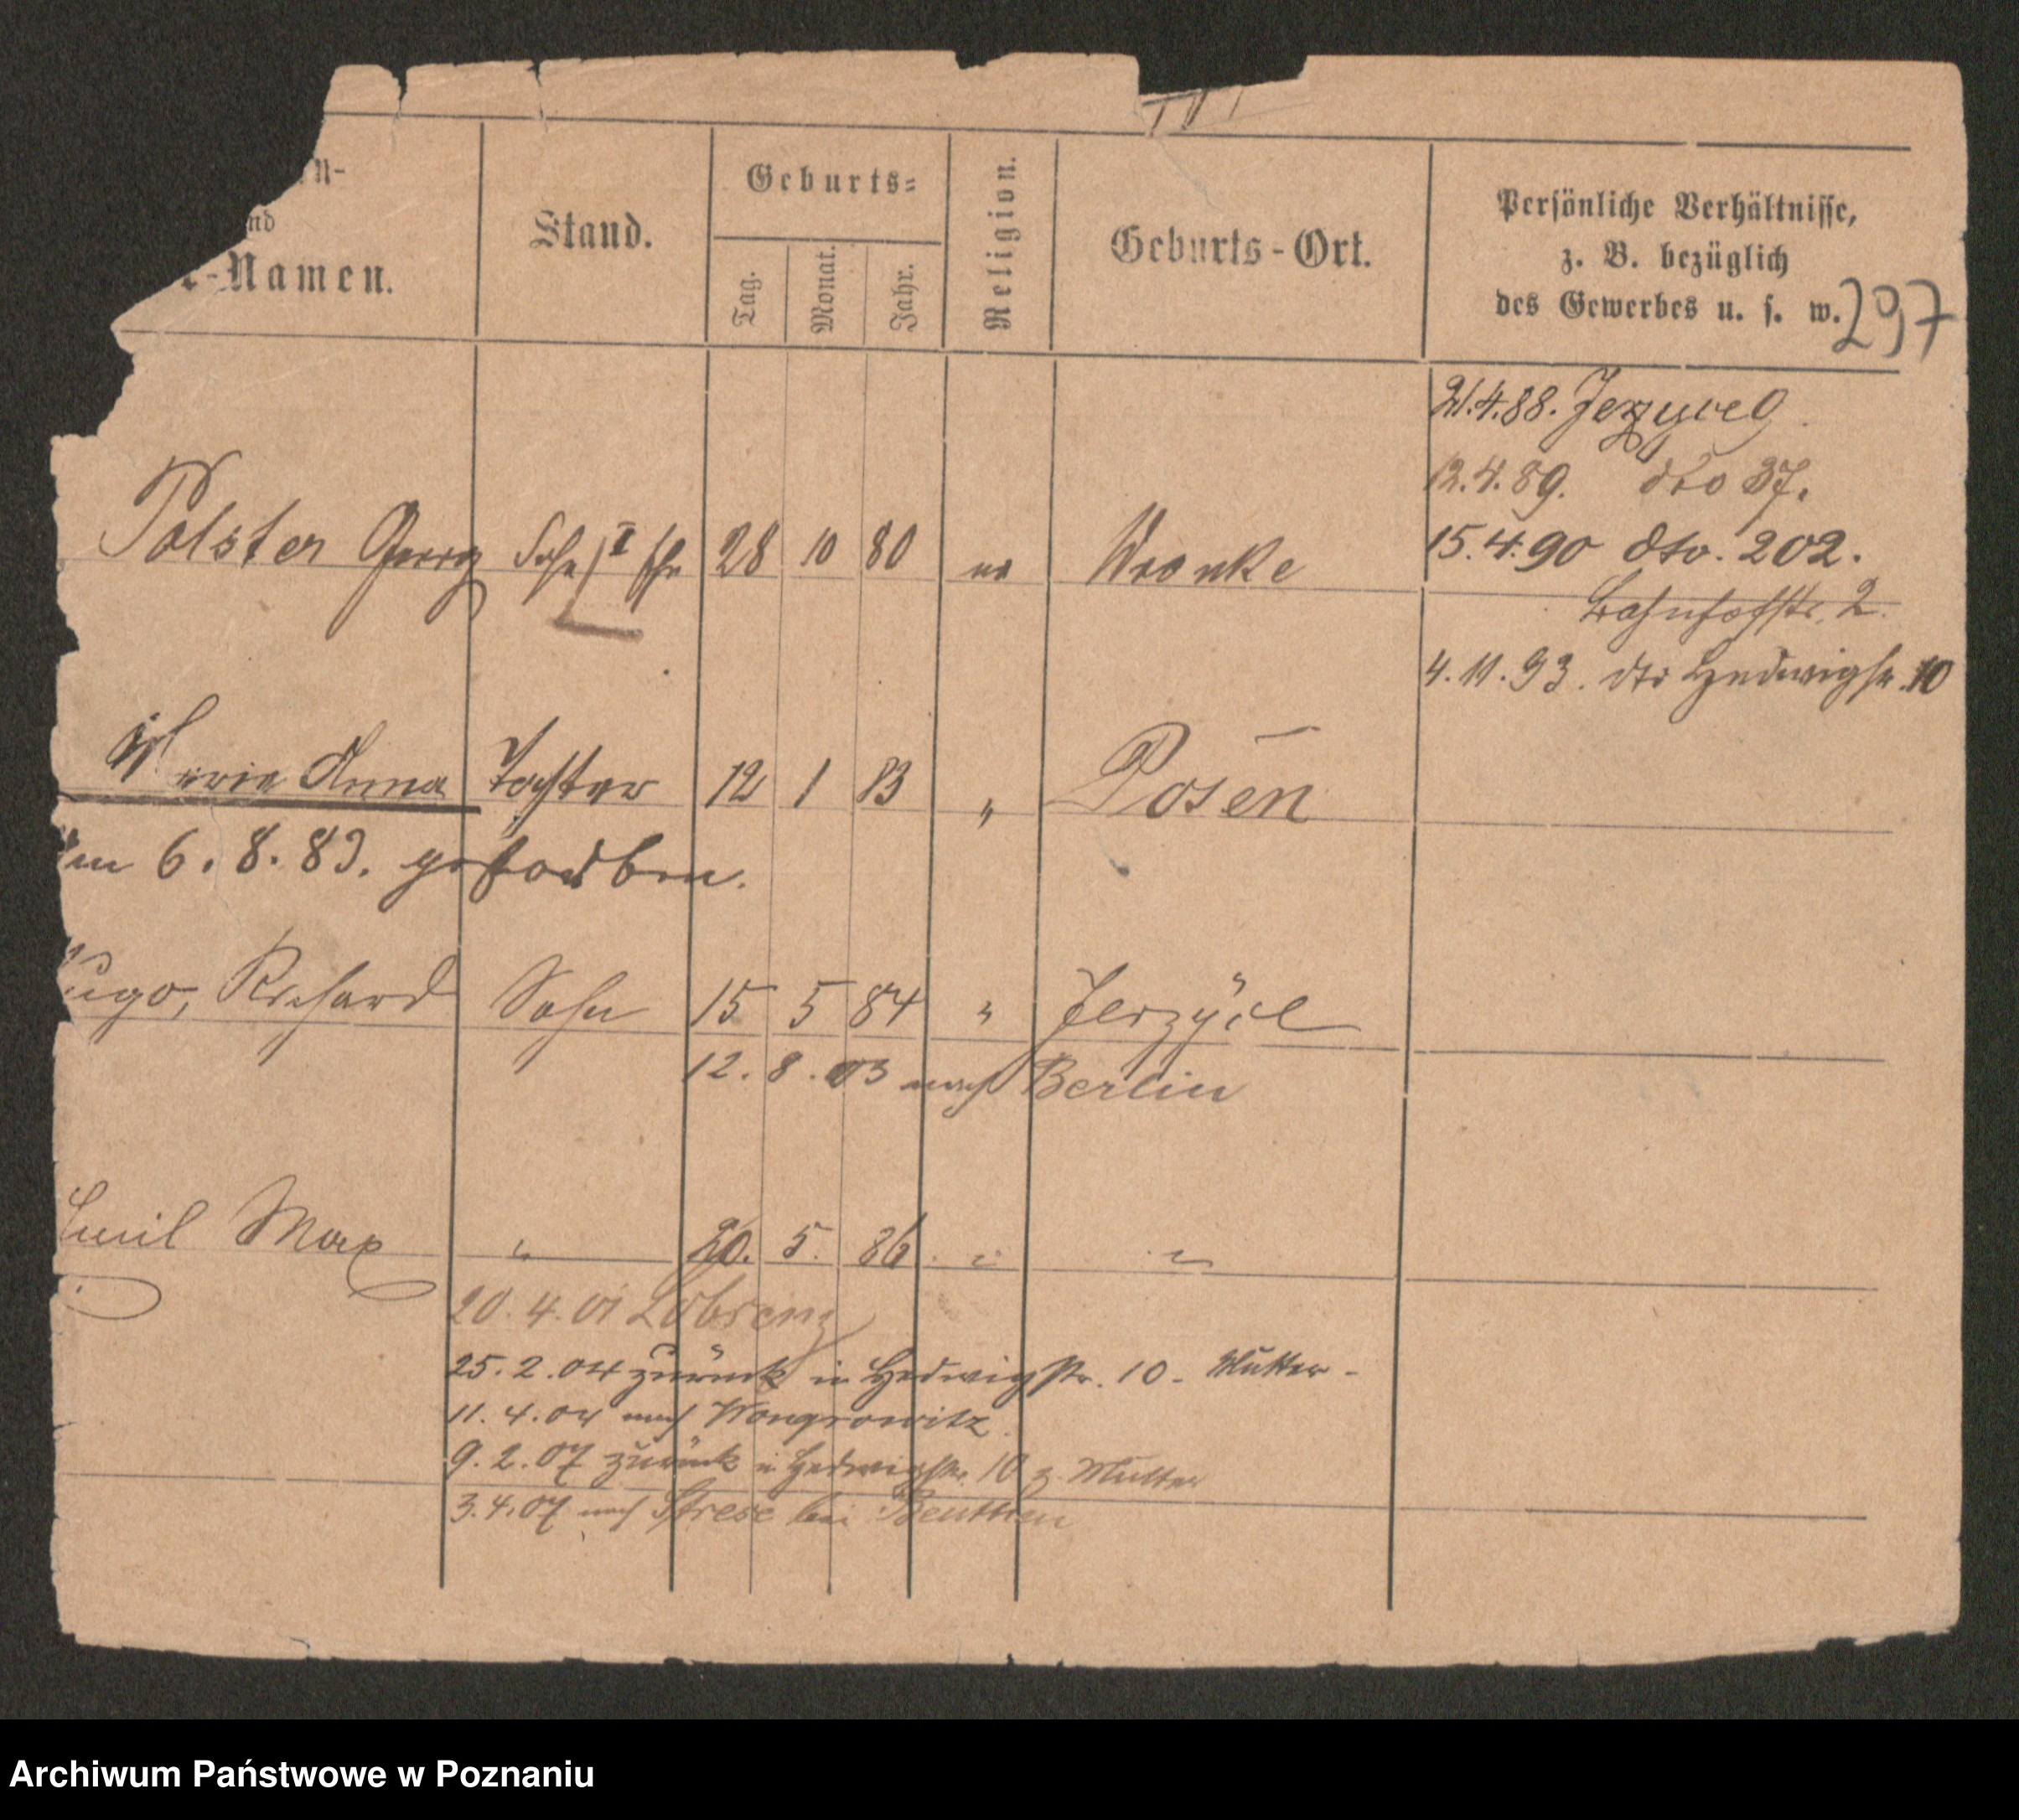 n-
nd
r-Namen.
Stand.
Geburts-
Tag.
Monat.
Jahr.
Religion.
Geburts-Ort.
Persönliche Verhältnisse,
z. B. bezüglich
des Gewerbes u. s. w.
297
21.4.88. Jerzyce 9.
12.4.89. dto 37.
Polster Georg Sohn I 28 10 80 ev Wronke
15.4.90 dto. 202.
Bahnhofstr. 2.
4.11.93. dto Hedwigstr. 10
Marie Anna Tochter 12 1 83 " Posen
am 6.8.83. gestorben.
Hugo, Richard Sohn 15 5 84 " Jerzyce
12.8.03 nach Berlin
Emil Max " 20. 5. 86. " "
20.4.01 Lobsenz
25.2.04 zurück in Hedwigstr. 10 - Mutter -
11.4.04 nach Wongrowitz.
9.2.07 zurück in Hedwigstr. 10 z. Mutter
3.4.07 nach Strese bei Bentschen
Archiwum Państwowe w Poznaniu